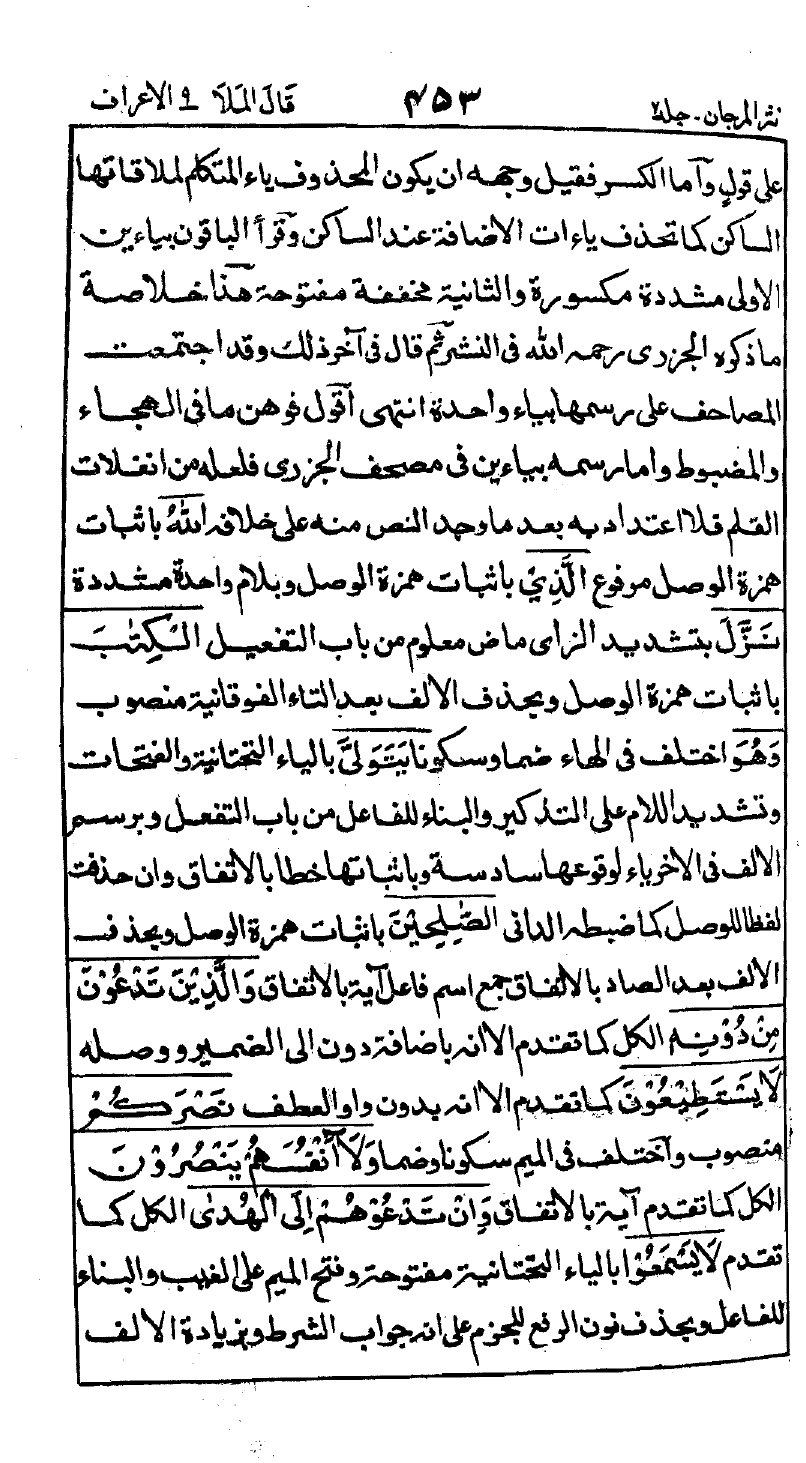 نثر المرجان - جلد٢ ٤٥٣ قَالَ المَلَأ ٩ الاعراف
على قولٍ وآما الكسر فقيل وجهه ان يكون المحذوف ياء المتكلم لملاقاتها
الساكن كما تحذف ياءات الاضافة عند الساكن وقرأ الباقون بياءين
الاولى مشددة مكسورة والثانية مخففة مفتوحة هذا خلاصة
ماذكره الجزرى رحمه الله فى النشر ثم قال فى آخر ذلك وقد اجتمعت
المصاحف على رسمها بياء واحدة انتهى اقول فوهن مافى الهجاء
والمضبوط واما رسمه بياءين فى مصحف الجزرى فلعله من انفلات
القلم فلا اعتداد به بعد ما وجد النص منه على خلافه اللهُ باثبات
همزة الوصل مرفوع الَّذِيْ باثبات همزة الوصل وبلام واحدة مشددة
نَزَّلَ بتشديد الزاى ماض معلوم من باب التفعيل الْكِتٰبَ
باثبات همزة الوصل وبحذف الالف بعد التاء الفوقانية منصوب
وَهُوَ اختلف فى الهاء ضما وسكونا يَتَوَلىَّ بالياء التحتانية والفتحات
وتشديد اللام على التذكير والبناء للفاعل من باب التفعل وبرسم
الالف فى الاخر ياء لوقوعها سادسة وباثباتها خطا بالاتفاق وان حذفت
لفظا للوصل كما ضبطه الدانى الصّٰلِحِيْنَ باثبات همزة الوصل وبحذف
الالف بعد الصاد بالاتفاق جمع اسم فاعل آية بالاتفاق وَالَّذِيْنَ تَدْعُوْنَ
مِنْ دُوْنِهٖ الكل كما تقدم الا انه باضافة دون الى الضمير ووصله
لَا يَسْتَطِيْعُوْنَ كما تقدم الا انه بدون واو العطف نَصْرَكُمْ
منصوب وآختلف فى الميم سكونا وضما وَلَا اَنْفُسَهُمْ يَنْصُرُوْنَ
الكل كما تقدم آية بالاتفاق وَاِنْ تَدْعُوْهُمْ اِلَى الْهُدٰى الكل كما
تقدم لَا يَسْمَعُوْا بالياء التحتانية مفتوحة وفتح الميم على الغيب والبناء
للفاعل وبحذف نون الرفع للجزم على انه جواب الشرط وبزيادة الالف